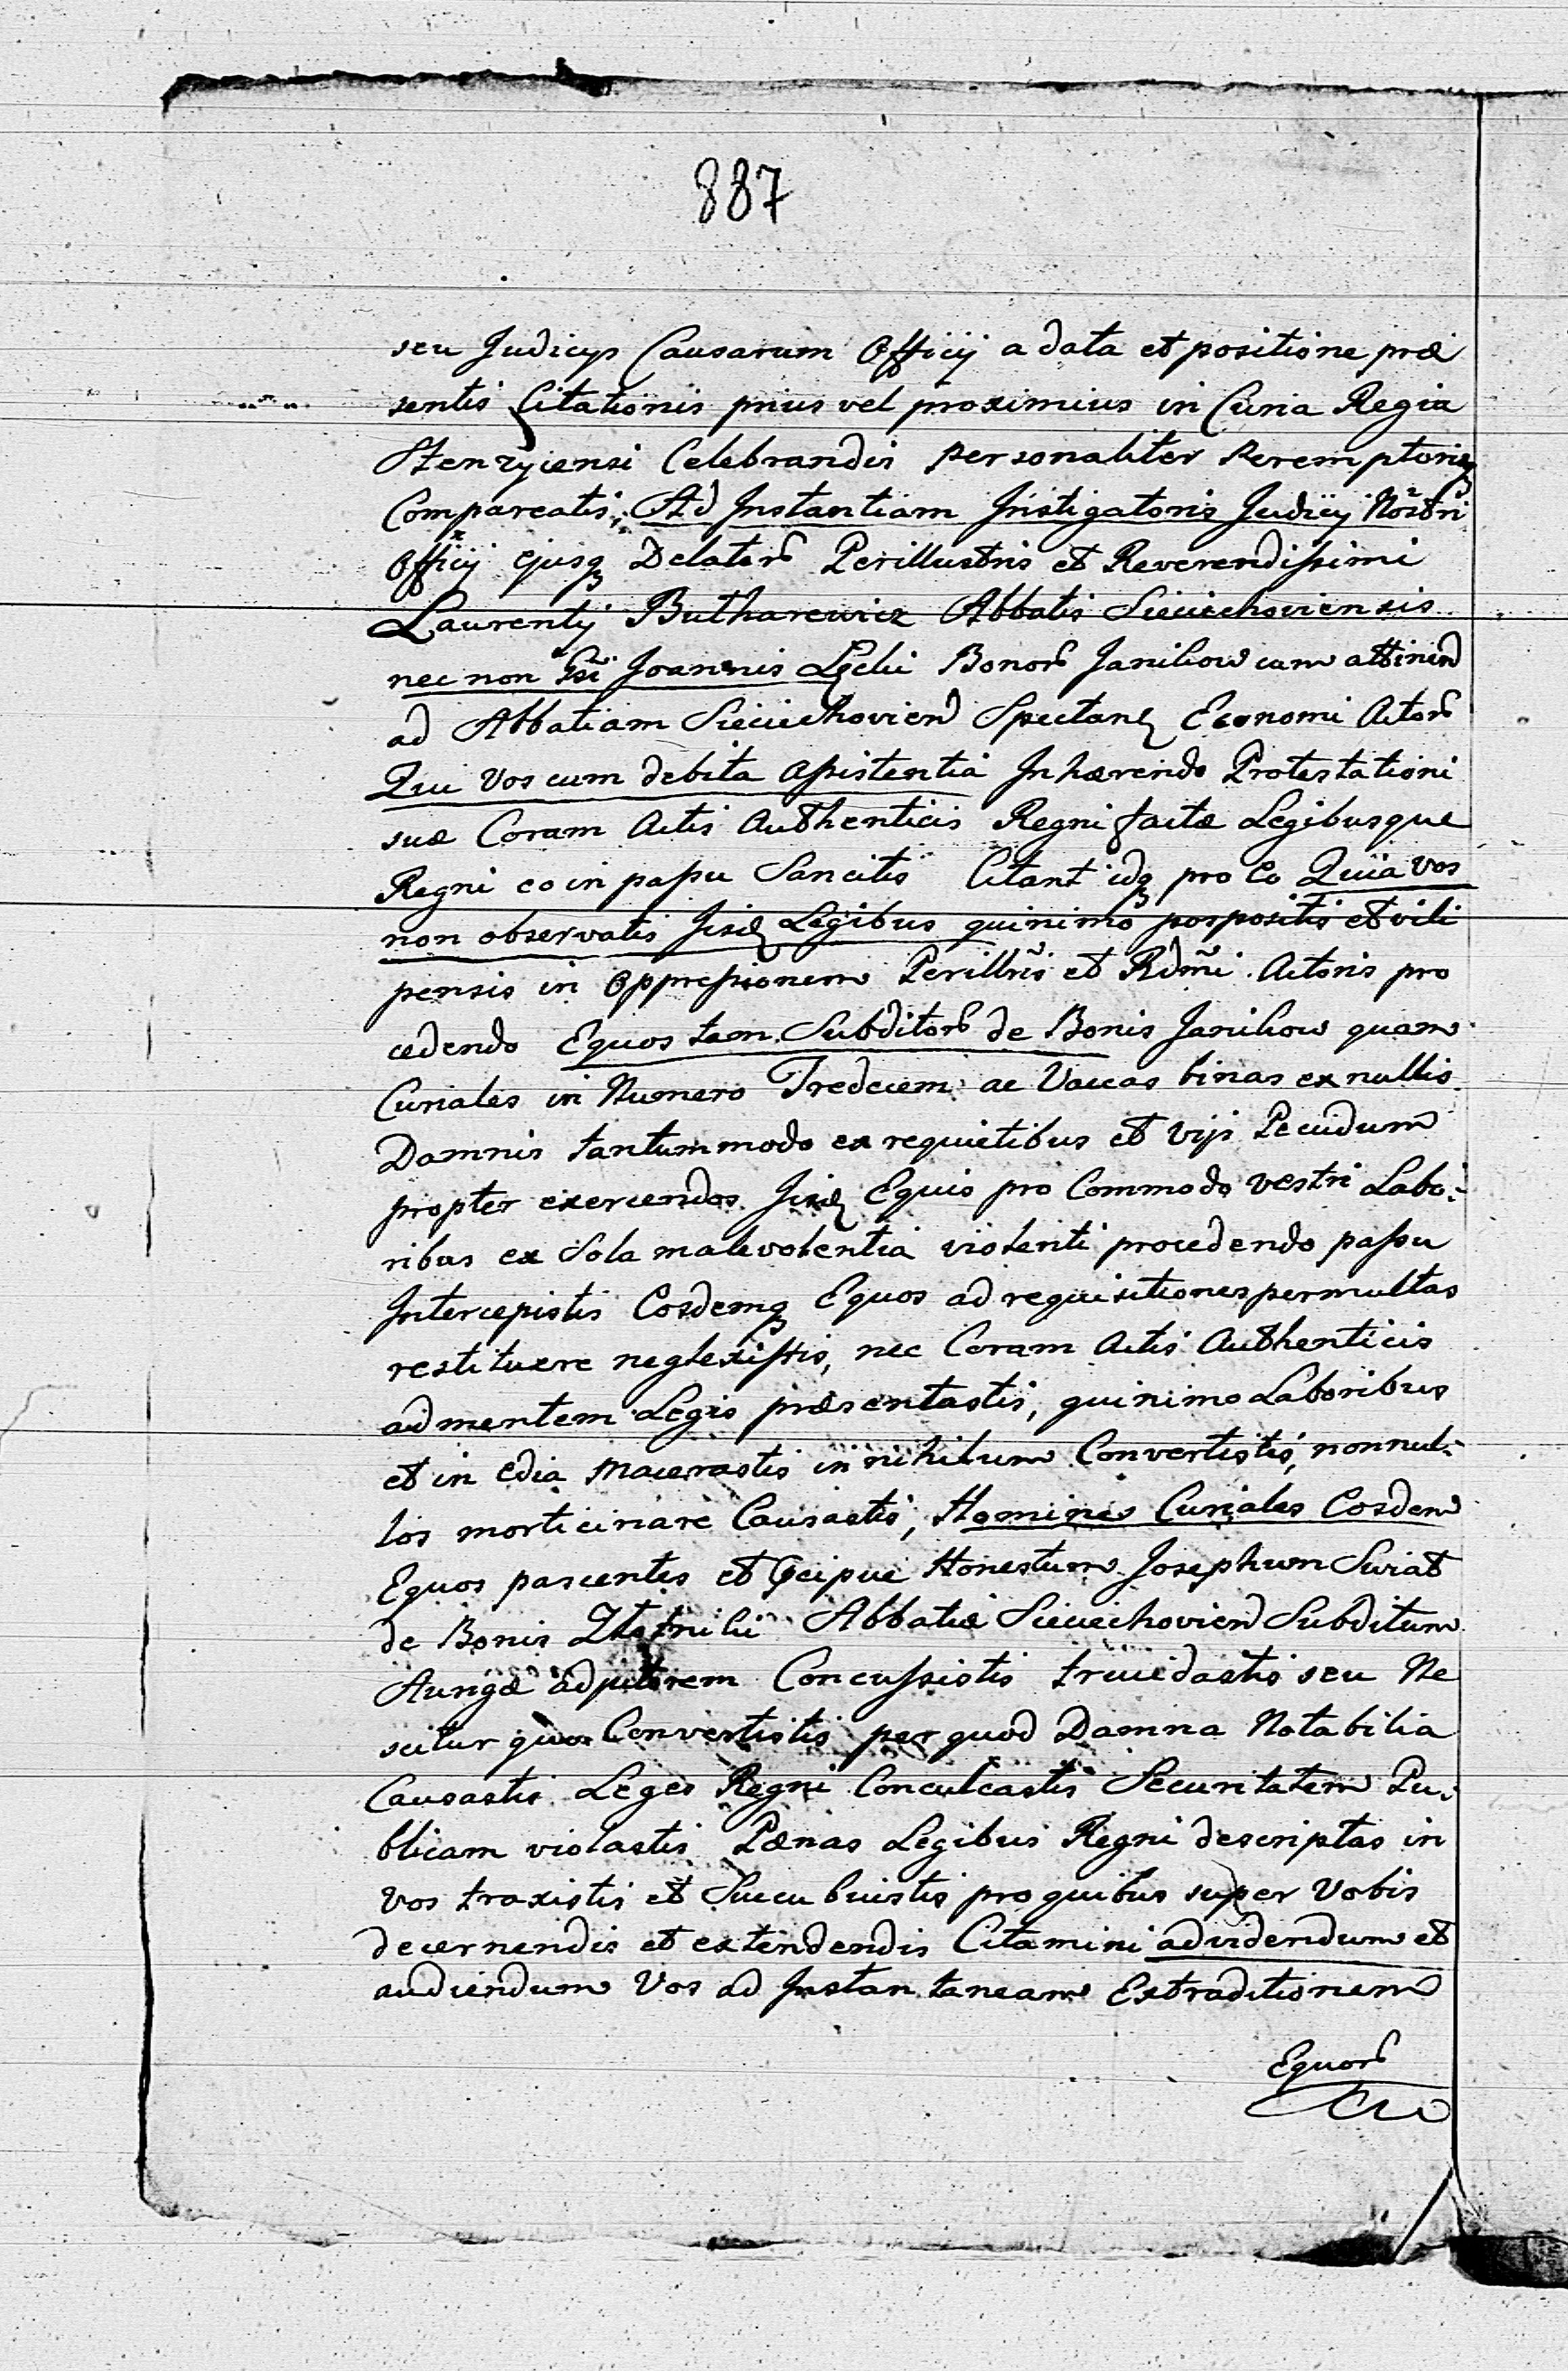 887
seu Judicijs Causarum Officij a data et positione præ
sentis Citationis prius vel proximius in Curia Regia
Stenzyciensi Celebrandis personaliter peremptorieqȝ
Compareatis, Ad Instantiam Instigatoris Judicij Nostri
Officij ejusqȝ Delator Perillustris et Reverendissimi
Laurentij Butharewicz Abbatis Sieciechoviensis
nec non Gsi Joannis Lgcki Bonor Janikow cum attinen
ad Abbatiam Sieciechovien Spectan Economi Actor
Qui Vos cum debita Assistentia Inhærendo Protestationi
suæ Coram Actis Authenticis Regni factæ Legibusque
Regni eo in passu Sancitis Citant idqȝ pro eo Quia vos
non observatis Jisd Legibus quinimo pospositis et vili
pensis in oppressionem Perillris et Rdmi Actoris pro
cedendo Equos tam Subditor de Bonis Janikow quam
Curiales in Numero Tredecem ac Vaccas binas ex nullis
Damnis tantummodo ex requietibus et vijs Pecudum
propter exercendos Jisd Equis pro Commodo vestri Labo:
ribus ex Sola malevolentia violenti procedendo passu
Intercepistis Eosdemqȝ Equos ad requisitiones permultas
restituere neglexistis, nec Coram Actis Authenticis
ad mentem Legis præsentastis, quinimo Laboribus
et in edia macerastis in nihilum Convertistis, nonnul:
los morticinare Causastis, Homines Curiales Eosdem
Equos pascentes et Præcipue Honestum Josephum Swiat
de Bonis Abbatiæ Sieciechovien Subditum
Aurigæ Concussistis trucidastis seu Ne
scitur quos Convertistis per quod Damna Notabilia
Causastis Leges Regni Conculcastis Securitatem Pu:
blicam violastis Pænas Legibus Regni descriptas in
vos traxistis et Succubuistis pro quibus super Vobis
decernendis et extendendis Citamini ad videndum et
audiendum Vos ad Instantaneam Extraditionem
Equor